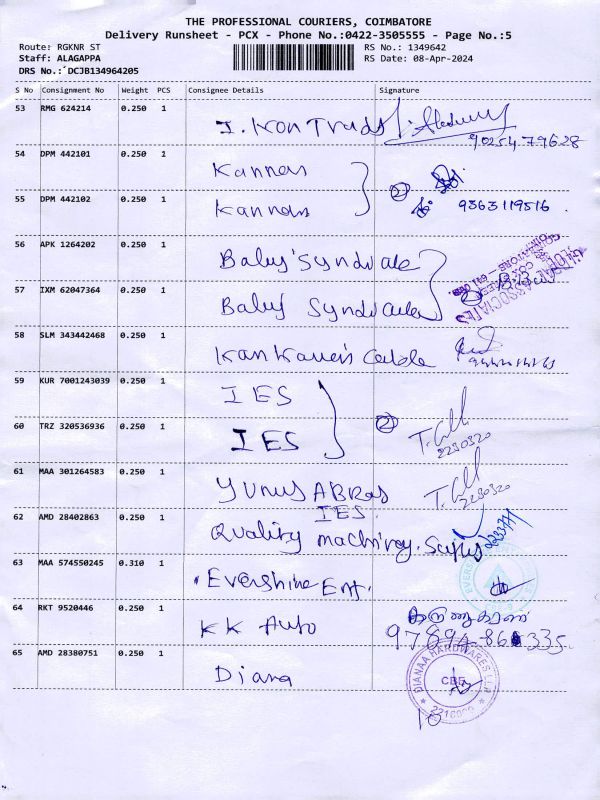 THE PROFESSIONAL COURIERS, COIMBATORE
Delivery Runsheet - PCX - Phone No.:0422-3505555 - Page No.:5
Route: RGKNR ST RS No.: 1349642
Staff: ALAGAPPA RS Date: 08-Apr-2024
DRS No.: DCJB134964205
S No Consignment No Weight PCS Consignee Details Signature
53 RMG 624214 0.250 1 I. Kon Trads 9025479628
54 DPM 442101 0.250 1 Kannas
55 DPM 442102 0.250 1 Kannas 2 9363119516
56 APK 1264202 0.250 1 Baby Syndicate
57 IXM 62047364 0.250 1 Baby Syndicate
58 SLM 343442468 0.250 1
59 KUR 7001243039 0.250 1 IES
60 TRZ 320536936 0.250 1 IES 2 2230320
61 MAA 301264583 0.250 1 Yunus ABRas 2230320
IES
62 AMD 28402863 0.250 1 Quality machinery. 223377
63 MAA 574550245 0.310 1 Evershine Ent.
64 RKT 9520446 0.250 1 KK Auto
65 AMD 28380751 0.250 1 Diana
DIANAA HARDWARES LLP
CBE